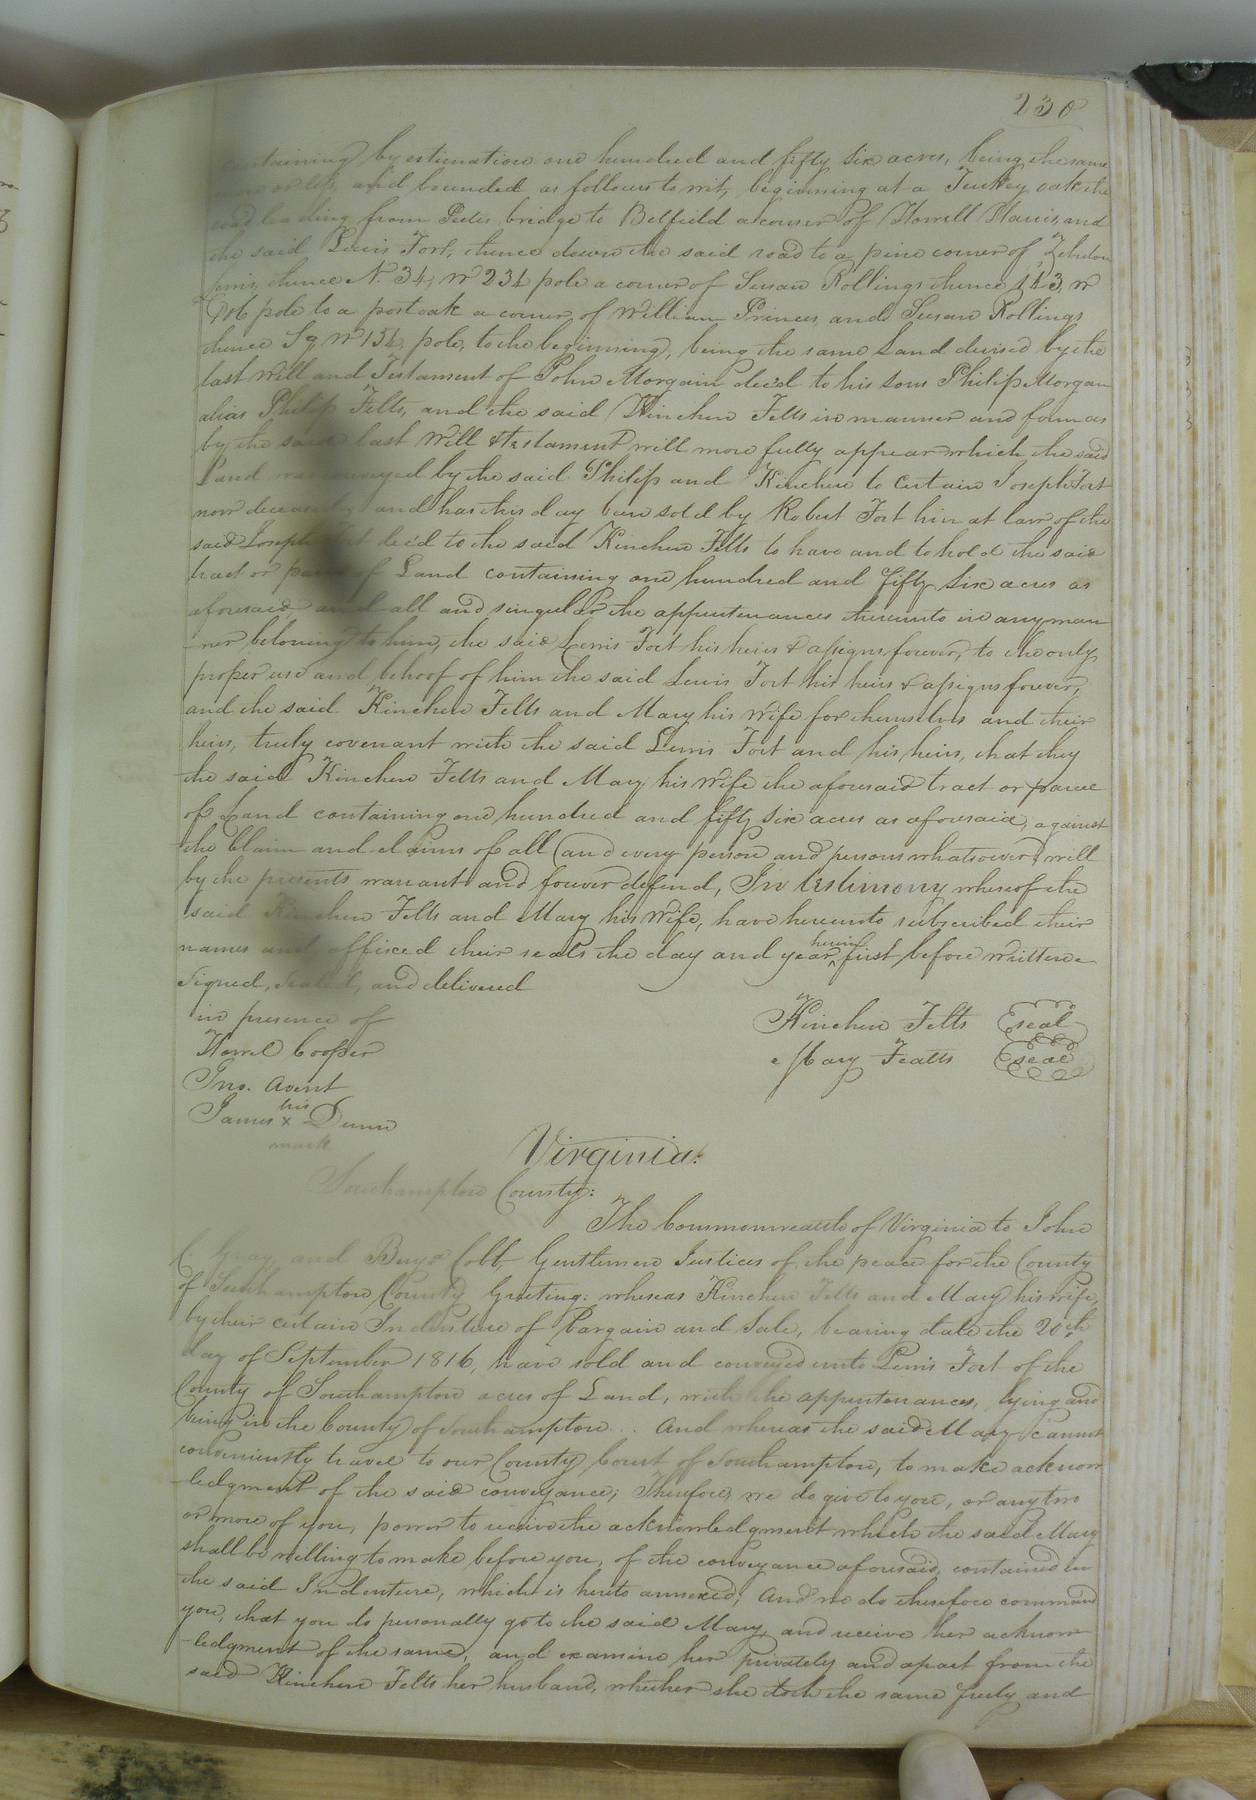 230
containing by estimation one hundred and fifty six acres, being the same
more or less, and bounded as follows to wit, beginning at a Turkey oak the
road leading from Peters bridge to Belfield a corner of Howell Harris, and
the said Lewis Fort, thence down the said road to a pine corner of Zebulon
thence N. 34, W 234 pole a corner of Susan Rollings thence W
pole to a post oak a corner of William Princes, and Susan Rollings
thence S 9 W 154 pole, to the beginning, being the same Land devised by the
last Will and Testament of John Morgain dec'd to his sons Philip Morgan
alias Philip Felts, and the said Kinchen Felts in manner and form as
by the said last Will & Testament will more fully appear which the said
Land was conveyed by the said Philip and Kinchen to Certain Joseph Fort
now deceased, and has this day been sold by Robert Fort heir at law of the
said Joseph Fort dec'd to the said Kinchen Felts to have and to hold the said
tract or parcel of Land containing one hundred and fifty six acres as
aforesaid and all and singular the appurtenances thereunto in any man
ner beloning to him, the said Lewis Fort his heirs & assigns forever, to the only
proper use and behoof of him the said Lewis Fort his heirs & assigns forever,
and the said Kinchen Felts and Mary his Wife for themselves and their
heirs, truly covenant with the said Lewis Fort and his heirs, that they
the said Kinchen Felts and Mary his Wife the aforesaid tract or parcel
of Land containing one hundred and fifty six acres as aforesaid, against
the Claim and claims of all (and every person and persons whatsoever) will
by the presents warrant and forever defend, In testimony whereof the
said Kinchen Felts and Mary his Wife, have hereunto subscribed their
names and affixed their seals the day and year herein first before written
Signed, Sealed, and delivered
in presence of
Howel Cooper
Jno. Avent
James his x mark Dunn
Kinchen Felts seal
Mary Featts seal
Virginia:
Southampton County:
The Commonwealth of Virginia to John
C. Gray and Benja Cobb, Gentlemen Justices of the peace for the County
of Southampton County Greeting: whereas Kinchen Felts and Mary his wife,
by their certain Indenture of Bargain and Sale, bearing date the 20th
day of September 1816, have sold and conveyed unto Lewis Fort of the
County of Southampton acres of Land, with the appurtenances, lying and
being in the County of Southampton... And whereas the said Mary cannot
conveniently travel to our County Court of Southampton, to make acknow
ledgment of the said conveyance; Therefore, we do give to you, or any two
or more of you, power to receive the acknowledgment which the said Mary
shall be willing to make before you, of the conveyance aforesaid, contained in
the said Indenture, which is hereto annexed; And we do therefore command
you, that you do personally go to the said Mary, and receive her acknow
ledgment of the same, and examine her privately and apart from the
said Kinchen Felts her husband, whether she doth the same freely and